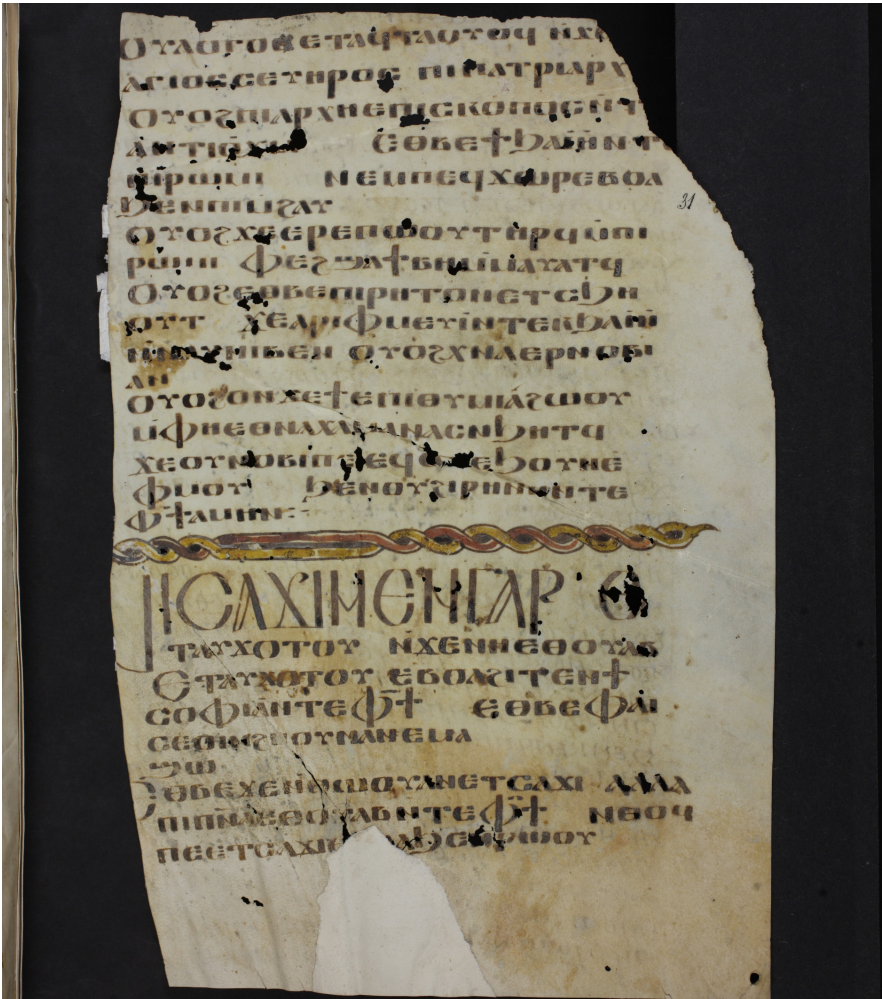 ⲞⲨⲖⲞⲄⲞⲤ ⲈⲦⲀϤⲦⲀⲞⲨⲞϤ ⲚϪⲈ
ⲀⲄⲒⲞⲤ ⲤⲈⲨⲎⲢⲞⲤ ⲠⲒⲠⲀⲦⲢⲒⲀⲢⲬ
ⲞⲨⲞϨ ⲠⲒⲀⲢⲬⲎⲈⲠⲒⲤⲔⲞⲠⲞⲤ ⲚⲦ
ⲀⲚⲦⲒⲞⲬⲒⲀ ⲈⲐⲂⲈ ϮϦⲀⲎ ⲚⲦ
ⲠⲒⲢⲰⲘⲒ ⲚⲈⲘ ⲠⲈϤϪⲰⲢ ⲈⲂⲞⲖ
ϦⲈⲚ ⲠⲒⲘϨⲀⲨ
ⲞⲨⲞϨ ϪⲈ ⲈⲢⲈ ⲠⲰⲞⲨ ⲦⲎⲢϤ ⲘⲠⲒ
ⲢⲰⲘⲒ ⲪⲈϨ ϢⲀ ϮⲂⲎ ⲘⲘⲀⲨⲀⲦϤ
ⲞⲨⲞϨ ⲈⲐⲂⲈ ⲠⲒⲢⲎϮ ⲞⲚ ⲈⲦⲤϦⲎ
ⲞⲨⲦ ϪⲈ ⲀⲢⲒⲪⲘⲈⲨⲒ ⲚⲦⲈⲔϦⲀⲎ
ⲚⲚⲀⲨ ⲚⲒⲂⲈⲚ ⲞⲨⲞϨ ⲬⲚⲀⲈⲢⲚⲞⲂⲒ
ⲀⲚ
ⲞⲨⲞϨ ⲞⲚ ϪⲈ ϮⲈⲠⲒⲐⲨⲘⲒⲀ ϨⲰⲞⲨ
ⲘⲪⲎ ⲈⲐⲚⲀⲬⲀ ⲚⲀⲤ ⲚϦⲎⲦϤ
ϪⲈ ⲞⲨⲚⲞⲂⲒ ⲠⲈ ⲈϤ ⲈϦⲞⲨⲚ Ⲉ
ⲪⲘⲞⲨ ϦⲈⲚ ⲞⲨϨⲒⲢⲎⲚⲎ ⲚⲦⲈ
ⲪϮ ⲀⲘⲎⲚ
ⲚⲒⲤⲀϪⲒ ⲘⲈⲚ ⲄⲀⲢ Ⲉ
ⲦⲀⲨϪⲞⲦⲞⲨ ⲚϪⲈ ⲚⲎ ⲈⲐⲞⲨⲀⲂ
ⲈⲦⲀⲨϪⲞⲦⲞⲨ ⲈⲂⲞⲖ ϨⲒⲦⲈⲚ Ϯ
ⲤⲞⲪⲒⲀ ⲚⲦⲈ ⲪϮ ⲈⲐⲂⲈ ⲪⲀⲒ
ⲤⲈⲞⲒ ⲚϨⲘⲞⲨ ⲚⲀⲚⲈ ⲘⲀ
ϢⲰ
ⲈⲐⲂⲈ ϪⲈ ⲚⲐⲰⲞⲨ ⲀⲚ ⲈⲦⲤⲀϪⲒ ⲀⲖⲖⲀ
ⲠⲒⲠⲚⲀ ⲈⲐⲞⲨⲀⲂ ⲚⲦⲈ ⲪϮ ⲚⲐⲞϤ
ⲠⲈ ⲈⲦⲤⲀϪⲒ ϦⲈⲚ ⲢⲰⲞⲨ
31